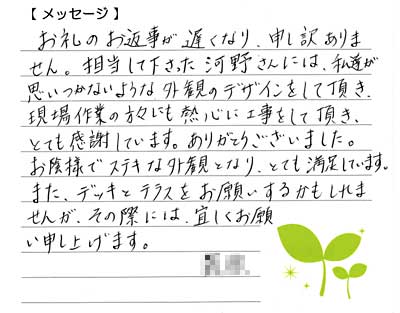 【メッセージ】
お礼のお返事が遅くなり、申し訳ありま
せん。担当して下さった河野さんには、私達が
思いつかないような外観のデザインをして頂き、
現場作業の方々にも熱心に工事をして頂き、
とても感謝しています。ありがとうございました。
お陰様でステキな外観となり、とても満足しています。
また、デッキとテラスをお願いするかもしれま
せんが、その際には、宜しくお願
い申し上げます。